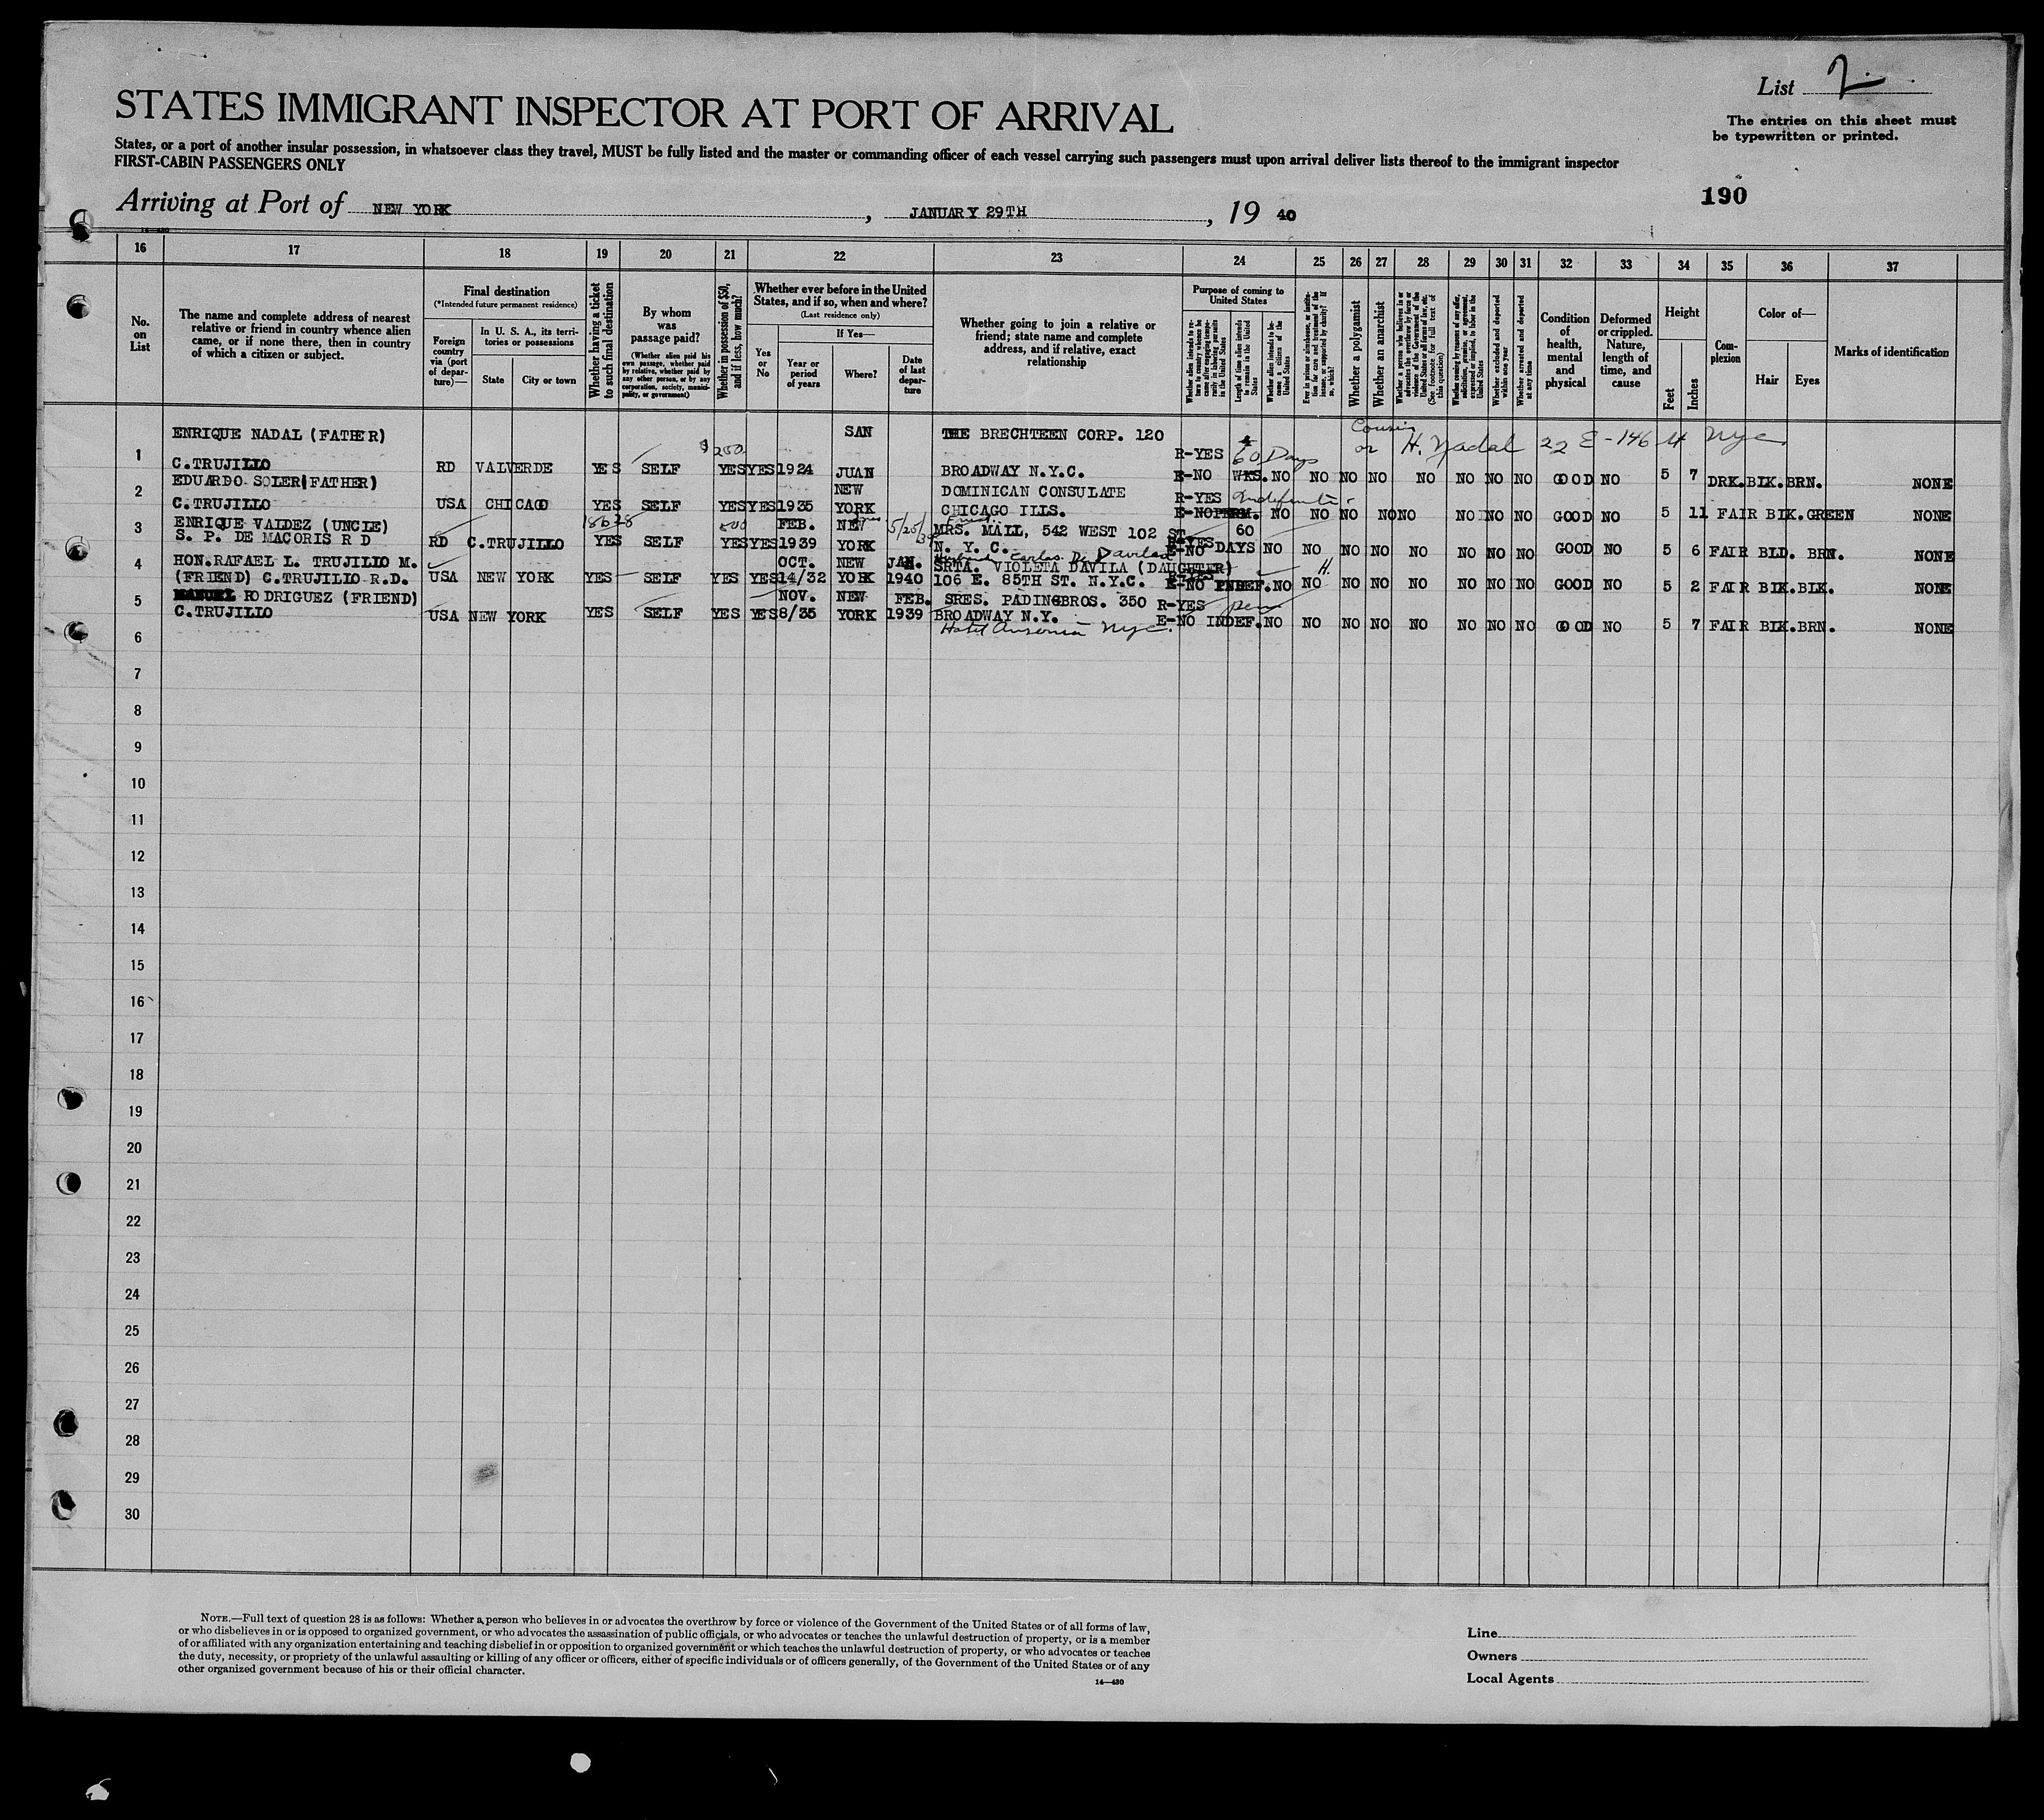 List 2
STATES IMMIGRANT INSPECTOR AT PORT OF ARRIVAL
The entries on this sheet must
be typewritten or printed.
States, or a port of another insular possession, in whatsoever class they travel, MUST be fully listed and the master or commanding officer of each vessel carrying such passengers must upon arrival deliver lists thereof to the immigrant inspector
FIRST-CABIN PASSENGERS ONLY
190
Arriving at Port of NEW YORK, JANUARY 29TH, 19 40
16 17 18 19 20 21 22 23 24 25 26 27 28 29 30 31 32 33 34 35 36 37
No. on List
The name and complete address of nearest
relative or friend in country whence alien
came, or if none there, then in country
of which a citizen or subject.
Final destination
(*Intended future permanent residence)
Foreign country via (port of departure)—
In U. S. A., its territories or possessions
State
City or town
Whether having a ticket to such final destination
By whom was passage paid?
(Whether alien paid his own passage, whether paid by relative, whether paid by any other person, or by any corporation, society, municipality, or government)
Whether in possession of $50, and if less, how much?
Whether ever before in the United States, and if so, when and where?
(Last residence only)
Yes or No
If Yes—
Year or period of years
Where?
Date of last departure
Whether going to join a relative or
friend; state name and complete
address, and if relative, exact
relationship
Purpose of coming to United States
Whether alien intends to return to country whence he came after engaging temporarily in laboring pursuits in the United States
Length of time alien intends to remain in the United States
Whether alien intends to become a citizen of the United States
Ever in prison or almshouse, or institution for care and treatment of the insane, or supported by charity? If so, which?
Whether a polygamist
Whether an anarchist
Whether a person who believes in or advocates the overthrow by force or violence of the Government of the United States or all forms of law, etc. (See footnote for full text of this question)
Whether coming by reason of any offer, solicitation, promise, or agreement, expressed or implied, to labor in the United States
Whether excluded and deported within one year
Whether arrested and deported at any time
Condition of health, mental and physical
Deformed or crippled. Nature, length of time, and cause
Height
Feet
Inches
Complexion
Color of—
Hair
Eyes
Marks of identification
ENRIQUE NADAL (FATHER) $200 SAN THE BRECHTEEN CORP. 120 R-YES 60 Days Cousin or H. Nadal 22 E-146 NYC
1 C.TRUJILLO RD VALVERDE YES SELF YES YES 1924 JUAN BROADWAY N.Y.C. E-NO WKS. NO NO NO NO NO NO NO NO GOOD NO 5 7 DRK. BLK. BRN. NONE
EDUARDO SOLER (FATHER) NEW DOMINICAN CONSULATE R-YES Indefinite
2 C.TRUJILLO USA CHICAGO YES SELF YES YES 1935 YORK CHICAGO ILLS. E-NO PERM. NO NO NO NO NO NO NO NO GOOD NO 5 11 FAIR BLK. GREEN NONE
ENRIQUE VALDEZ (UNCLE) 18628 500 FEB. NEW 5/25/39 Friend MRS. MALL, 542 WEST 102 ST. R-YES 60
3 S. P. DE MACORIS R D RD C.TRUJILLO YES SELF YES YES 1939 YORK N. Y. C. E-NO DAYS NO NO NO NO NO NO NO NO GOOD NO 5 6 FAIR BLD. BRN. NONE
HON.RAFAEL L. TRUJILLO M. OCT. NEW JAN. Husband Carlos D. Davila SRTA. VIOLETA DAVILA (DAUGHTER) H.
4 (FRIEND) C.TRUJILLO-R.D. USA NEW YORK YES SELF YES YES 14/32 YORK 1940 106 E. 85TH ST. N.Y.C. R-YES E-NO INDEF. NO NO NO NO NO NO NO NO GOOD NO 5 2 FAIR BLK. BLK. NONE
MANUEL RODRIGUEZ (FRIEND) NOV. NEW FEB. SRES. PADINGBROS. 350 R-YES perm
5 C.TRUJILLO USA NEW YORK YES SELF YES YES 8/35 YORK 1939 BROADWAY N.Y. E-NO INDEF. NO NO NO NO NO NO NO NO GOOD NO 5 7 FAIR BLK. BRN. NONE
Hotel Ansonia NYC.
6
7
8
9
10
11
12
13
14
15
16
17
18
19
20
21
22
23
24
25
26
27
28
29
30
NOTE.—Full text of question 28 is as follows: Whether a person who believes in or advocates the overthrow by force or violence of the Government of the United States or of all forms of law,
or who disbelieves in or is opposed to organized government, or who advocates the assassination of public officials, or who advocates or teaches the unlawful destruction of property, or is a member
of or affiliated with any organization entertaining and teaching disbelief in or opposition to organized government or which teaches the unlawful destruction of property, or who advocates or teaches
the duty, necessity, or propriety of the unlawful assaulting or killing of any officer or officers, either of specific individuals or of officers generally, of the Government of the United States or of any
other organized government because of his or their official character.
14—430
Line
Owners
Local Agents